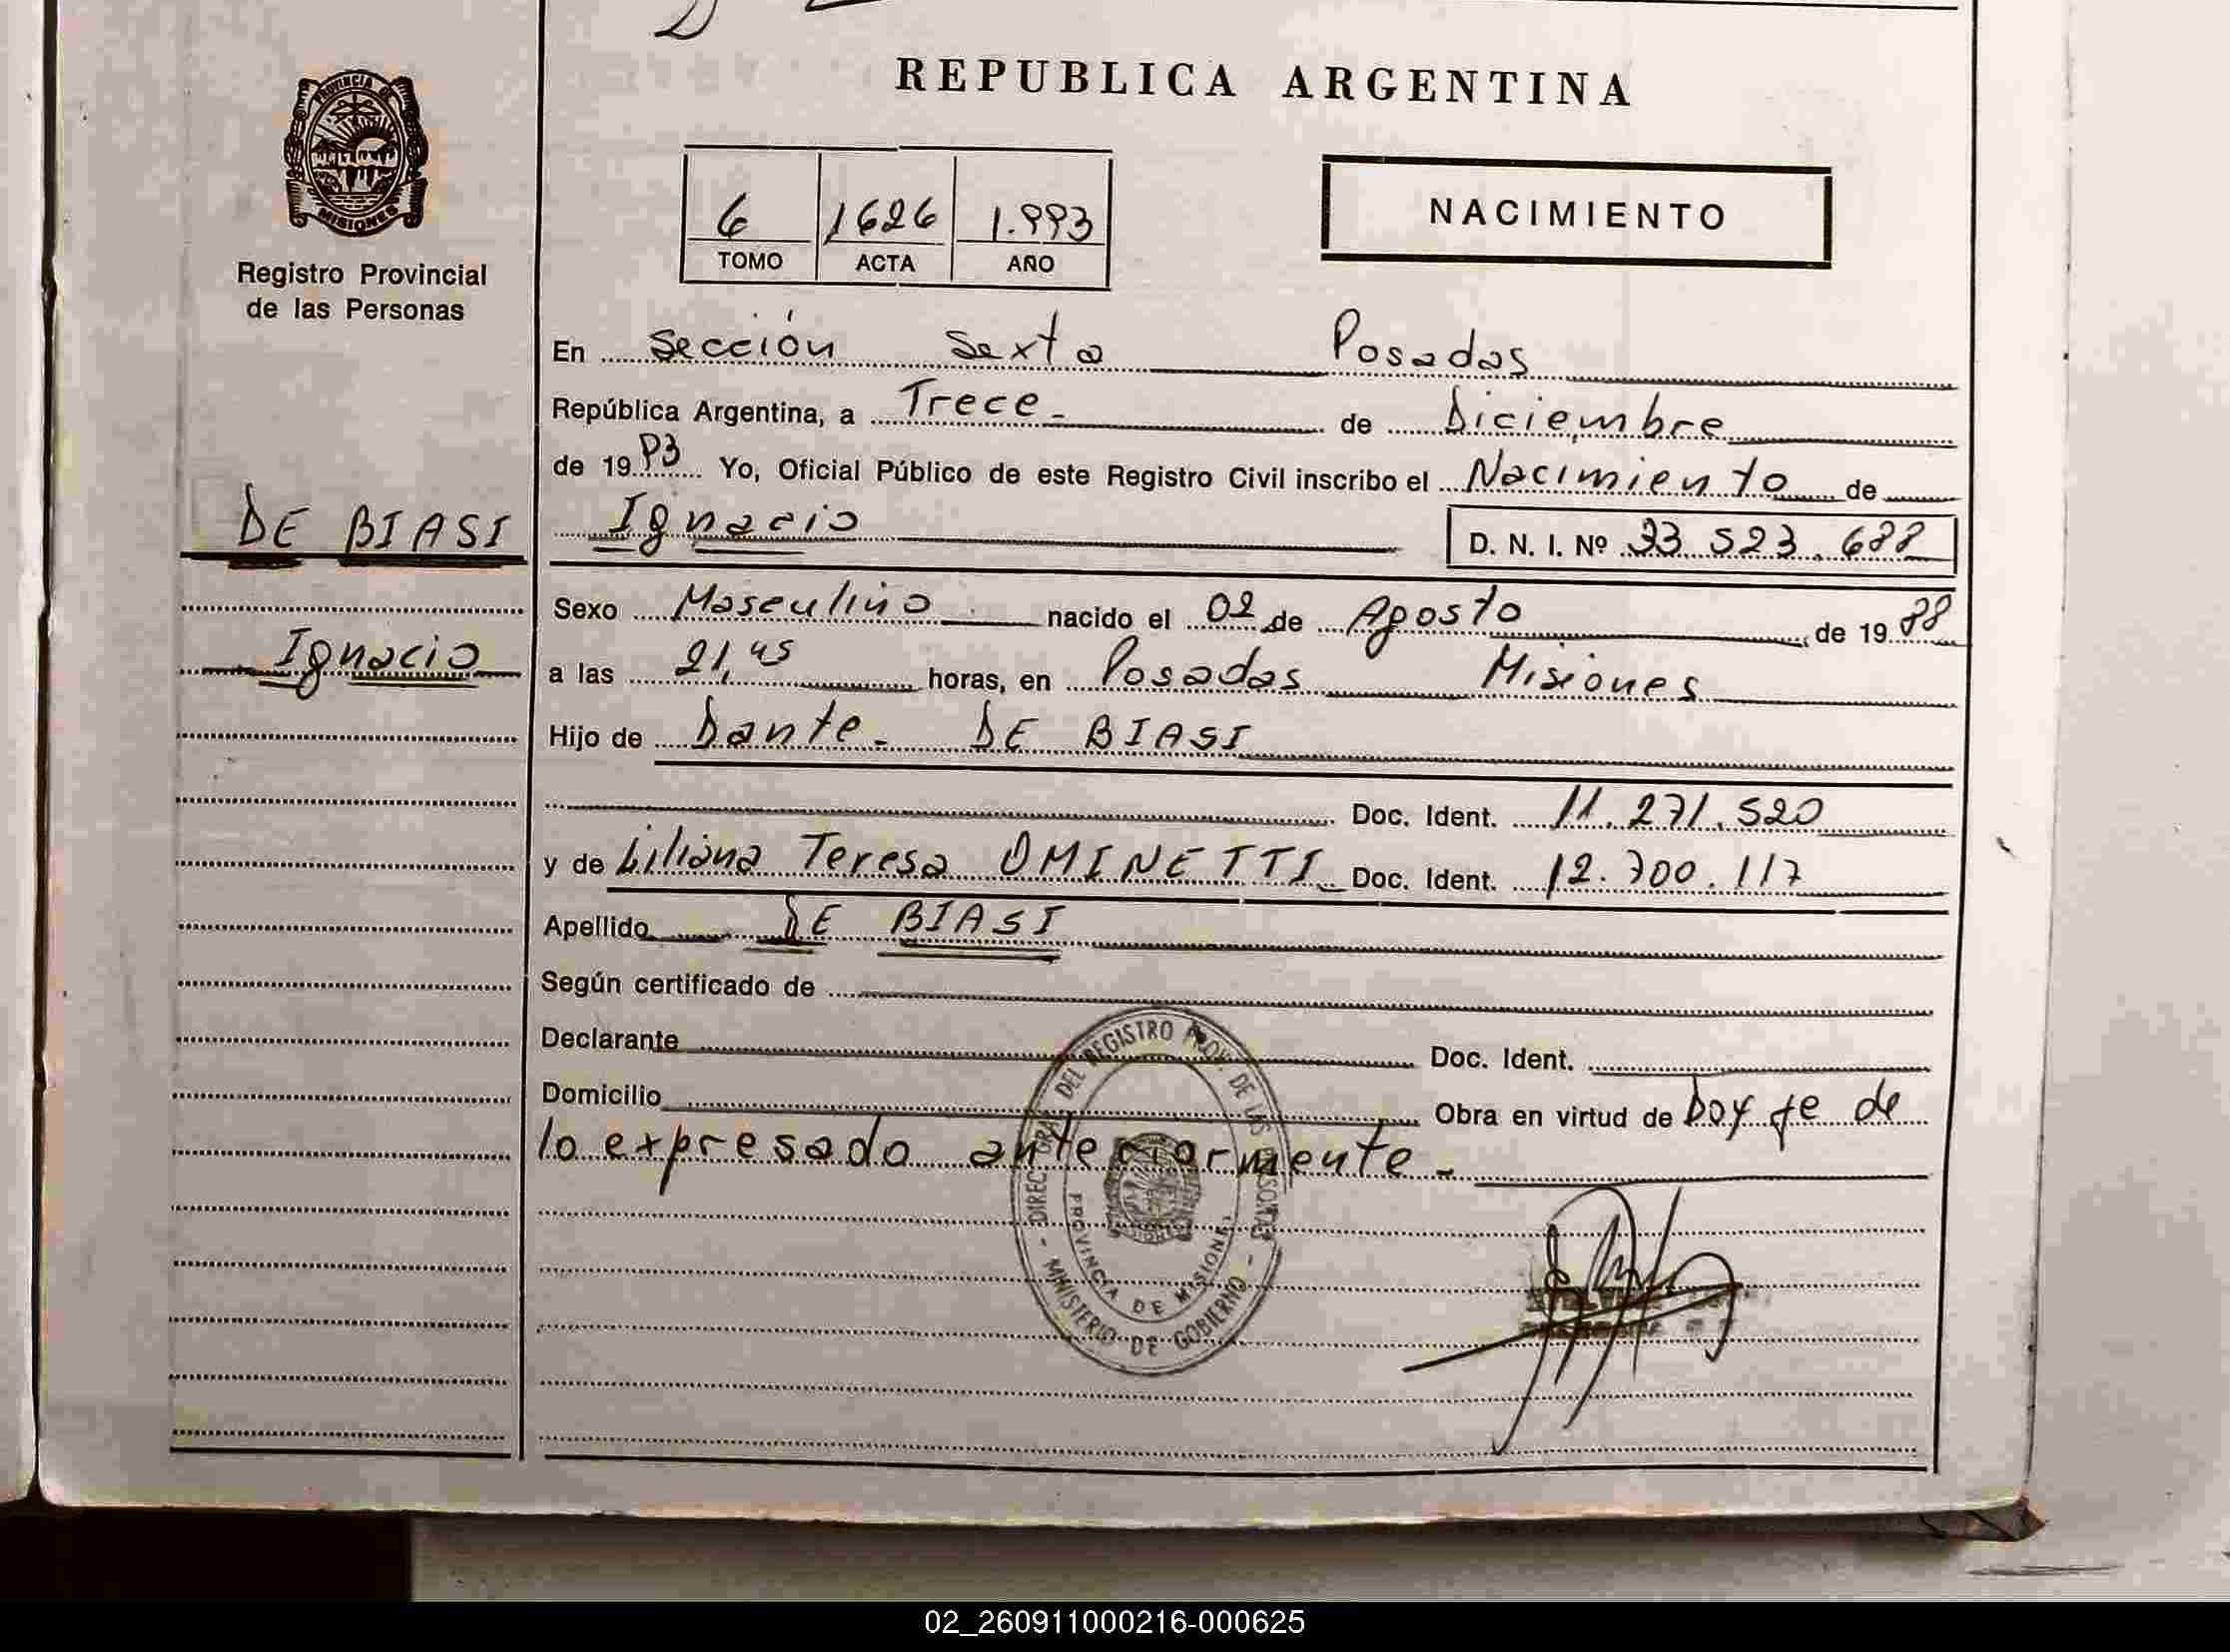 REPUBLICA ARGENTINA
PROVINCIA DE MISIONES
Registro Provincial
de las Personas
6 1626 1.993
TOMO ACTA AÑO
NACIMIENTO
En Sección Sexta Posadas
República Argentina, a Trece de Diciembre
de 1993 Yo, Oficial Público de este Registro Civil inscribo el Nacimiento de
DE BIASI
Ignacio
D. N. I. Nº 33.523.688
Sexo Masculino nacido el 02 de Agosto de 1988
Ignacio
a las 21,45 horas, en Posadas Misiones
Hijo de Dante DE BIASI
Doc. Ident. 11.271.520
y de Liliana Teresa OMINETTI Doc. Ident. 12.700.117
Apellido DE BIASI
Según certificado de
Declarante
Doc. Ident.
Domicilio
Obra en virtud de Doy fe de
lo expresado anteriormente.
DIREC. GRAL. DEL REGISTRO PROV. DE LAS PERSONAS
PROVINCIA DE MISIONES
MINISTERIO DE GOBIERNO
02_260911000216-000625